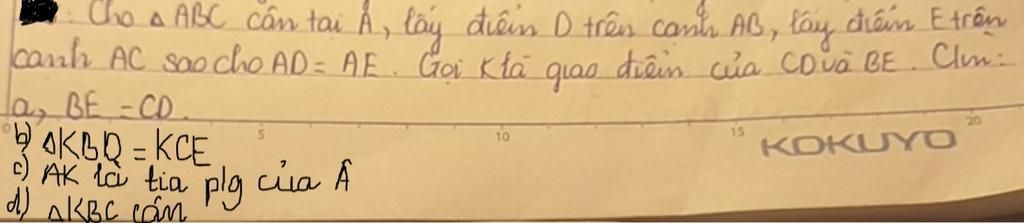 : Cho △ ABC cân tại A, lấy điểm D trên cạnh AB, lấy điểm E trên
cạnh AC sao cho AD = AE. Gọi K là giao điểm của CD và BE. Clm:
a, BE = CD.
5 10 15 20
KOKUYO
b) △KBD = KCE
c) AK là tia p/g của Â
d) △KBC cân